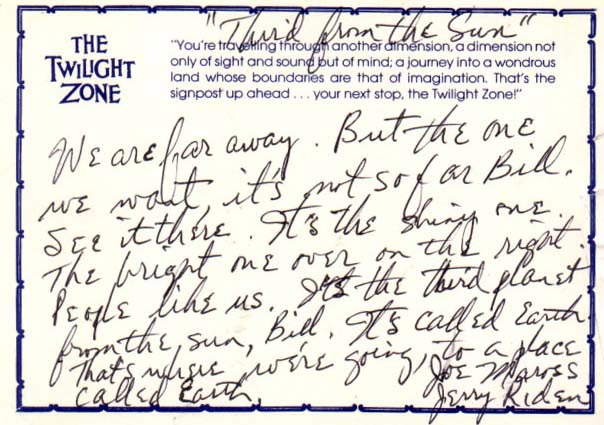 "Third from the Sun"
THE
TWILIGHT
ZONE
"You're travelling through another dimension, a dimension not
only of sight and sound but of mind; a journey into a wondrous
land whose boundaries are that of imagination. That's the
signpost up ahead . . . your next stop, the Twilight Zone!"
We are far away. But the one
we want, it's not so far Bill.
See it there. It's the shiny one.
The bright one over on the right.
People like us. It's the third planet
from the sun, Bill. It's called Earth.
That's where we're going, to a place
called Earth
Joe Maross
Jerry Riden